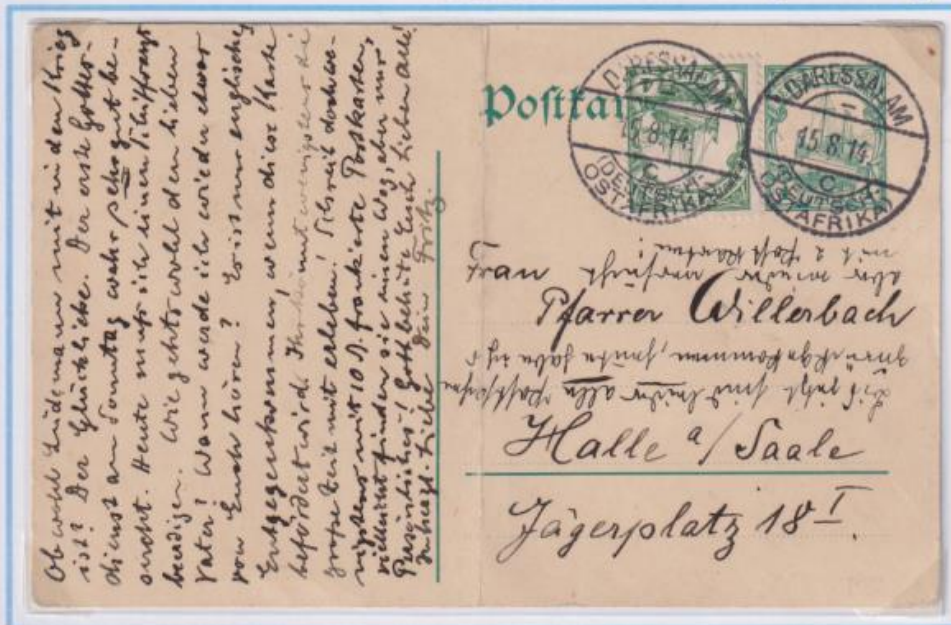 Ob wohl Lüdemann mit in den Krieg
ist? Der Glückliche. Der erste Gottes-
dienst am Sonntag war sehr gut be-
sucht. Heute muß ich einen
beerdigen. Wie geht's wohl dem lieben
Vater? Wann werde ich wieder etwas
von Euch hören? Es ist nur englisches
Entgegenkommen, wenn diese Karte
befördert wird. Ihr könnt wenigstens die
große Zeit mit erleben! Schreibt doch
mit 10 frankierte Postkarten,
vielleicht finden sie einen Weg, aber nur
Persönliches! Gott behüte Euch Lieben alle!
In herzl. Liebe Dein Fritz.
Postkar
DARESSALAM
15.8.14.
C
(DEUTSCH-
OSTAFRIKA)
DARESSALAM
15.8.14.
C
(DEUTSCH-
OSTAFRIKA)
Frau
Pfarrer Willerbach
Halle a/Saale
Jägerplatz 18 I.
Bis jetzt sind leider alle Postsachen
zurückgekommen, heute habe ich es
aber wieder versucht
mit 2 Postkarten!